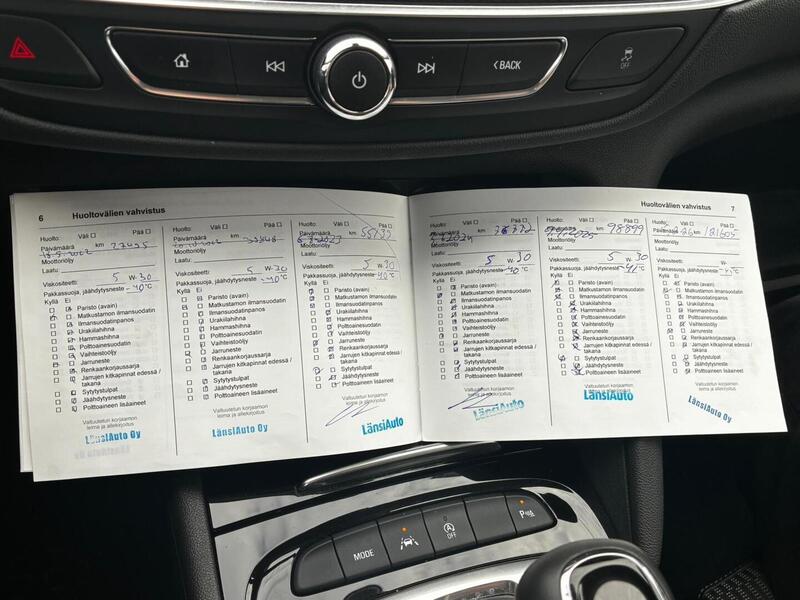 BACK
OFF
6 Huoltovälien vahvistus
Huolto: Väli Pää
Päivämäärä km 27495
Moottoriöljy
Laatu:
Viskositeetti: 5 W- 30
Pakkassuoja, jäähdytysneste -40°C
Kyllä Ei
Paristo (avain)
Matkustamon ilmansuodatin
Ilmansuodatinpanos
Urakilahihna
Hammashihna
Polttoainesuodatin
Vaihteistoöljy
Jarruneste
Renkaankorjaussarja
Jarrujen kitkapinnat edessä /
takana
Sytytystulpat
Jäähdytysneste
Polttoaineen lisäaineet
Valtuutetun korjaamon
leima ja allekirjoitus
LänsiAuto Oy
Huolto: Väli Pää
Päivämäärä km
Moottoriöljy
Laatu:
Viskositeetti: 5 W- 30
Pakkassuoja, jäähdytysneste -40°C
Kyllä Ei
Paristo (avain)
Matkustamon ilmansuodatin
Ilmansuodatinpanos
Urakilahihna
Hammashihna
Polttoainesuodatin
Vaihteistoöljy
Jarruneste
Renkaankorjaussarja
Jarrujen kitkapinnat edessä /
takana
Sytytystulpat
Jäähdytysneste
Polttoaineen lisäaineet
Valtuutetun korjaamon
leima ja allekirjoitus
LänsiAuto Oy
Huolto: Väli Pää
Päivämäärä km
Moottoriöljy
Laatu:
Viskositeetti: 5 W- 30
Pakkassuoja, jäähdytysneste -40°C
Kyllä Ei
Paristo (avain)
Matkustamon ilmansuodatin
Ilmansuodatinpanos
Urakilahihna
Hammashihna
Polttoainesuodatin
Vaihteistoöljy
Jarruneste
Renkaankorjaussarja
Jarrujen kitkapinnat edessä /
takana
Sytytystulpat
Jäähdytysneste
Polttoaineen lisäaineet
Valtuutetun korjaamon
leima ja allekirjoitus
LänsiAuto
Huoltovälien vahvistus 7
Huolto: Väli Pää
Päivämäärä km
Moottoriöljy
Laatu:
Viskositeetti: 5 W- 30
Pakkassuoja, jäähdytysneste -40°C
Kyllä Ei
Paristo (avain)
Matkustamon ilmansuodatin
Ilmansuodatinpanos
Urakilahihna
Hammashihna
Polttoainesuodatin
Vaihteistoöljy
Jarruneste
Renkaankorjaussarja
Jarrujen kitkapinnat edessä /
takana
Sytytystulpat
Jäähdytysneste
Polttoaineen lisäaineet
Valtuutetun korjaamon
leima ja allekirjoitus
LänsiAuto
Huolto: Väli Pää
Päivämäärä km 98899
Moottoriöljy
Laatu:
Viskositeetti: 5 W- 30
Pakkassuoja, jäähdytysneste
Kyllä Ei
Paristo (avain)
Matkustamon ilmansuodatin
Ilmansuodatinpanos
Urakilahihna
Hammashihna
Polttoainesuodatin
Vaihteistoöljy
Jarruneste
Renkaankorjaussarja
Jarrujen kitkapinnat edessä /
takana
Sytytystulpat
Jäähdytysneste
Polttoaineen lisäaineet
Valtuutetun korjaamon
leima ja allekirjoitus
LänsiAuto
Huolto: Väli Pää
Päivämäärä km 121605
Moottoriöljy
Laatu:
Viskositeetti: W-
Pakkassuoja, jäähdytysneste
Kyllä Ei
Paristo (avain)
Matkustamon ilmansuodatin
Ilmansuodatinpanos
Urakilahihna
Hammashihna
Polttoainesuodatin
Vaihteistoöljy
Jarruneste
Renkaankorjaussarja
Jarrujen kitkapinnat edessä /
takana
Sytytystulpat
Jäähdytysneste
Polttoaineen lisäaineet
Valtuutetun korjaamon
leima ja allekirjoitus
LänsiAuto Oy
MODE
OFF
P